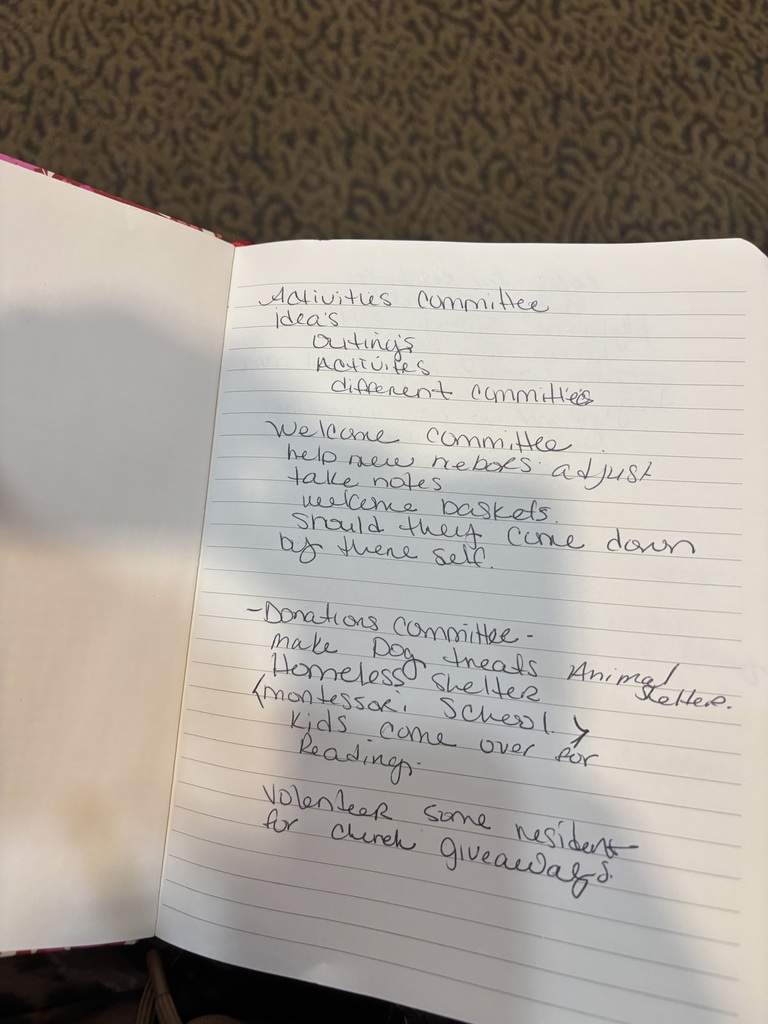 Activities committee
idea's
outing's
Activites
different committees
Welcome committee
help new nebors adjust
take notes
welcome baskets.
should they come down
by there self.
-Donations committee-
make Dog treats Animal
Shelter.
Homeless shelter
(montessori School)
Kids come over for
Reading.
Volenteer some resident
for church giveaways.